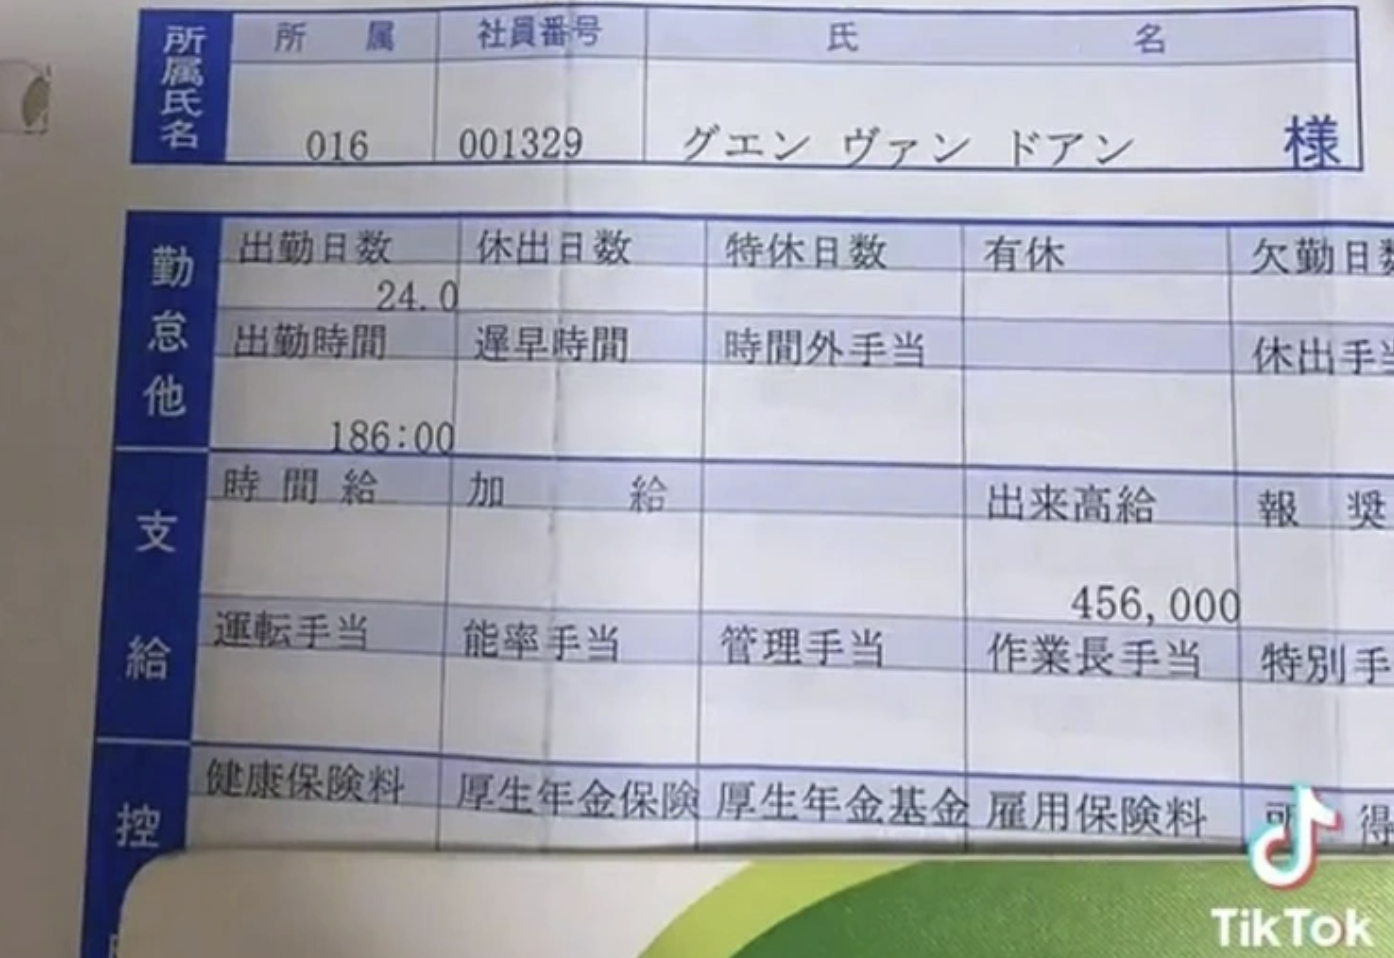 所属氏名
所 属 社員番号 氏 名
016 001329 グエン ヴァン ドアン 様
勤怠他
出勤日数 休出日数 特休日数 有休 欠勤日数
24.0
出勤時間 遅早時間 時間外手当 休出手当
186:00
支給
時間給 加 給 出来高給 報 奨
456,000
運転手当 能率手当 管理手当 作業長手当 特別手
控
健康保険料 厚生年金保険 厚生年金基金 雇用保険料 得
TikTok